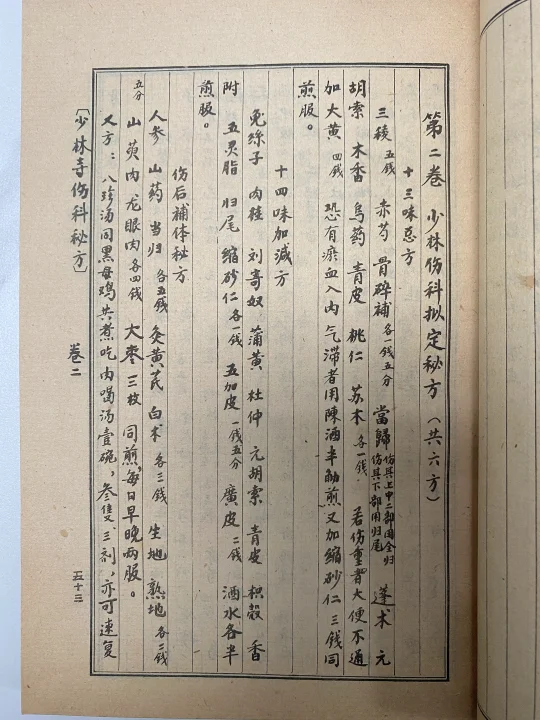 第二卷 少林伤科拟定秘方（共六方）
十三味总方
三稜五钱 赤芍 骨碎補各一钱五分 當歸伤具上中二部用全归伤具下部用归尾 蓬术 元
胡索 木香 烏药 青皮 桃仁 苏木各一钱. 若伤重者大便不通
加大黄四钱 恐有瘀血入内气滞者用陳酒半觔煎又加缩砂仁三钱同
煎服。
十四味加減方
兔絲子 肉桂 刘寄奴 蒲黄 杜仲 元胡索 青皮 枳殼 香
附 五灵脂 归尾 缩砂仁各一钱 五加皮一钱五分 廣皮二钱 酒水各半
煎服。
伤后補体秘方
人参 山药 当归各五钱 灸黄芪 白术各三钱 生地 熟地各二钱
五分 山萸肉 龙眼肉各四钱 大棗三枚 同煎,每日早晚两服。
又方：八珍汤同黑母鸡共煮吃肉喝汤壹碗，叁隻、三剂，亦可速复
〔少林寺伤科秘方〕 卷二 五十三